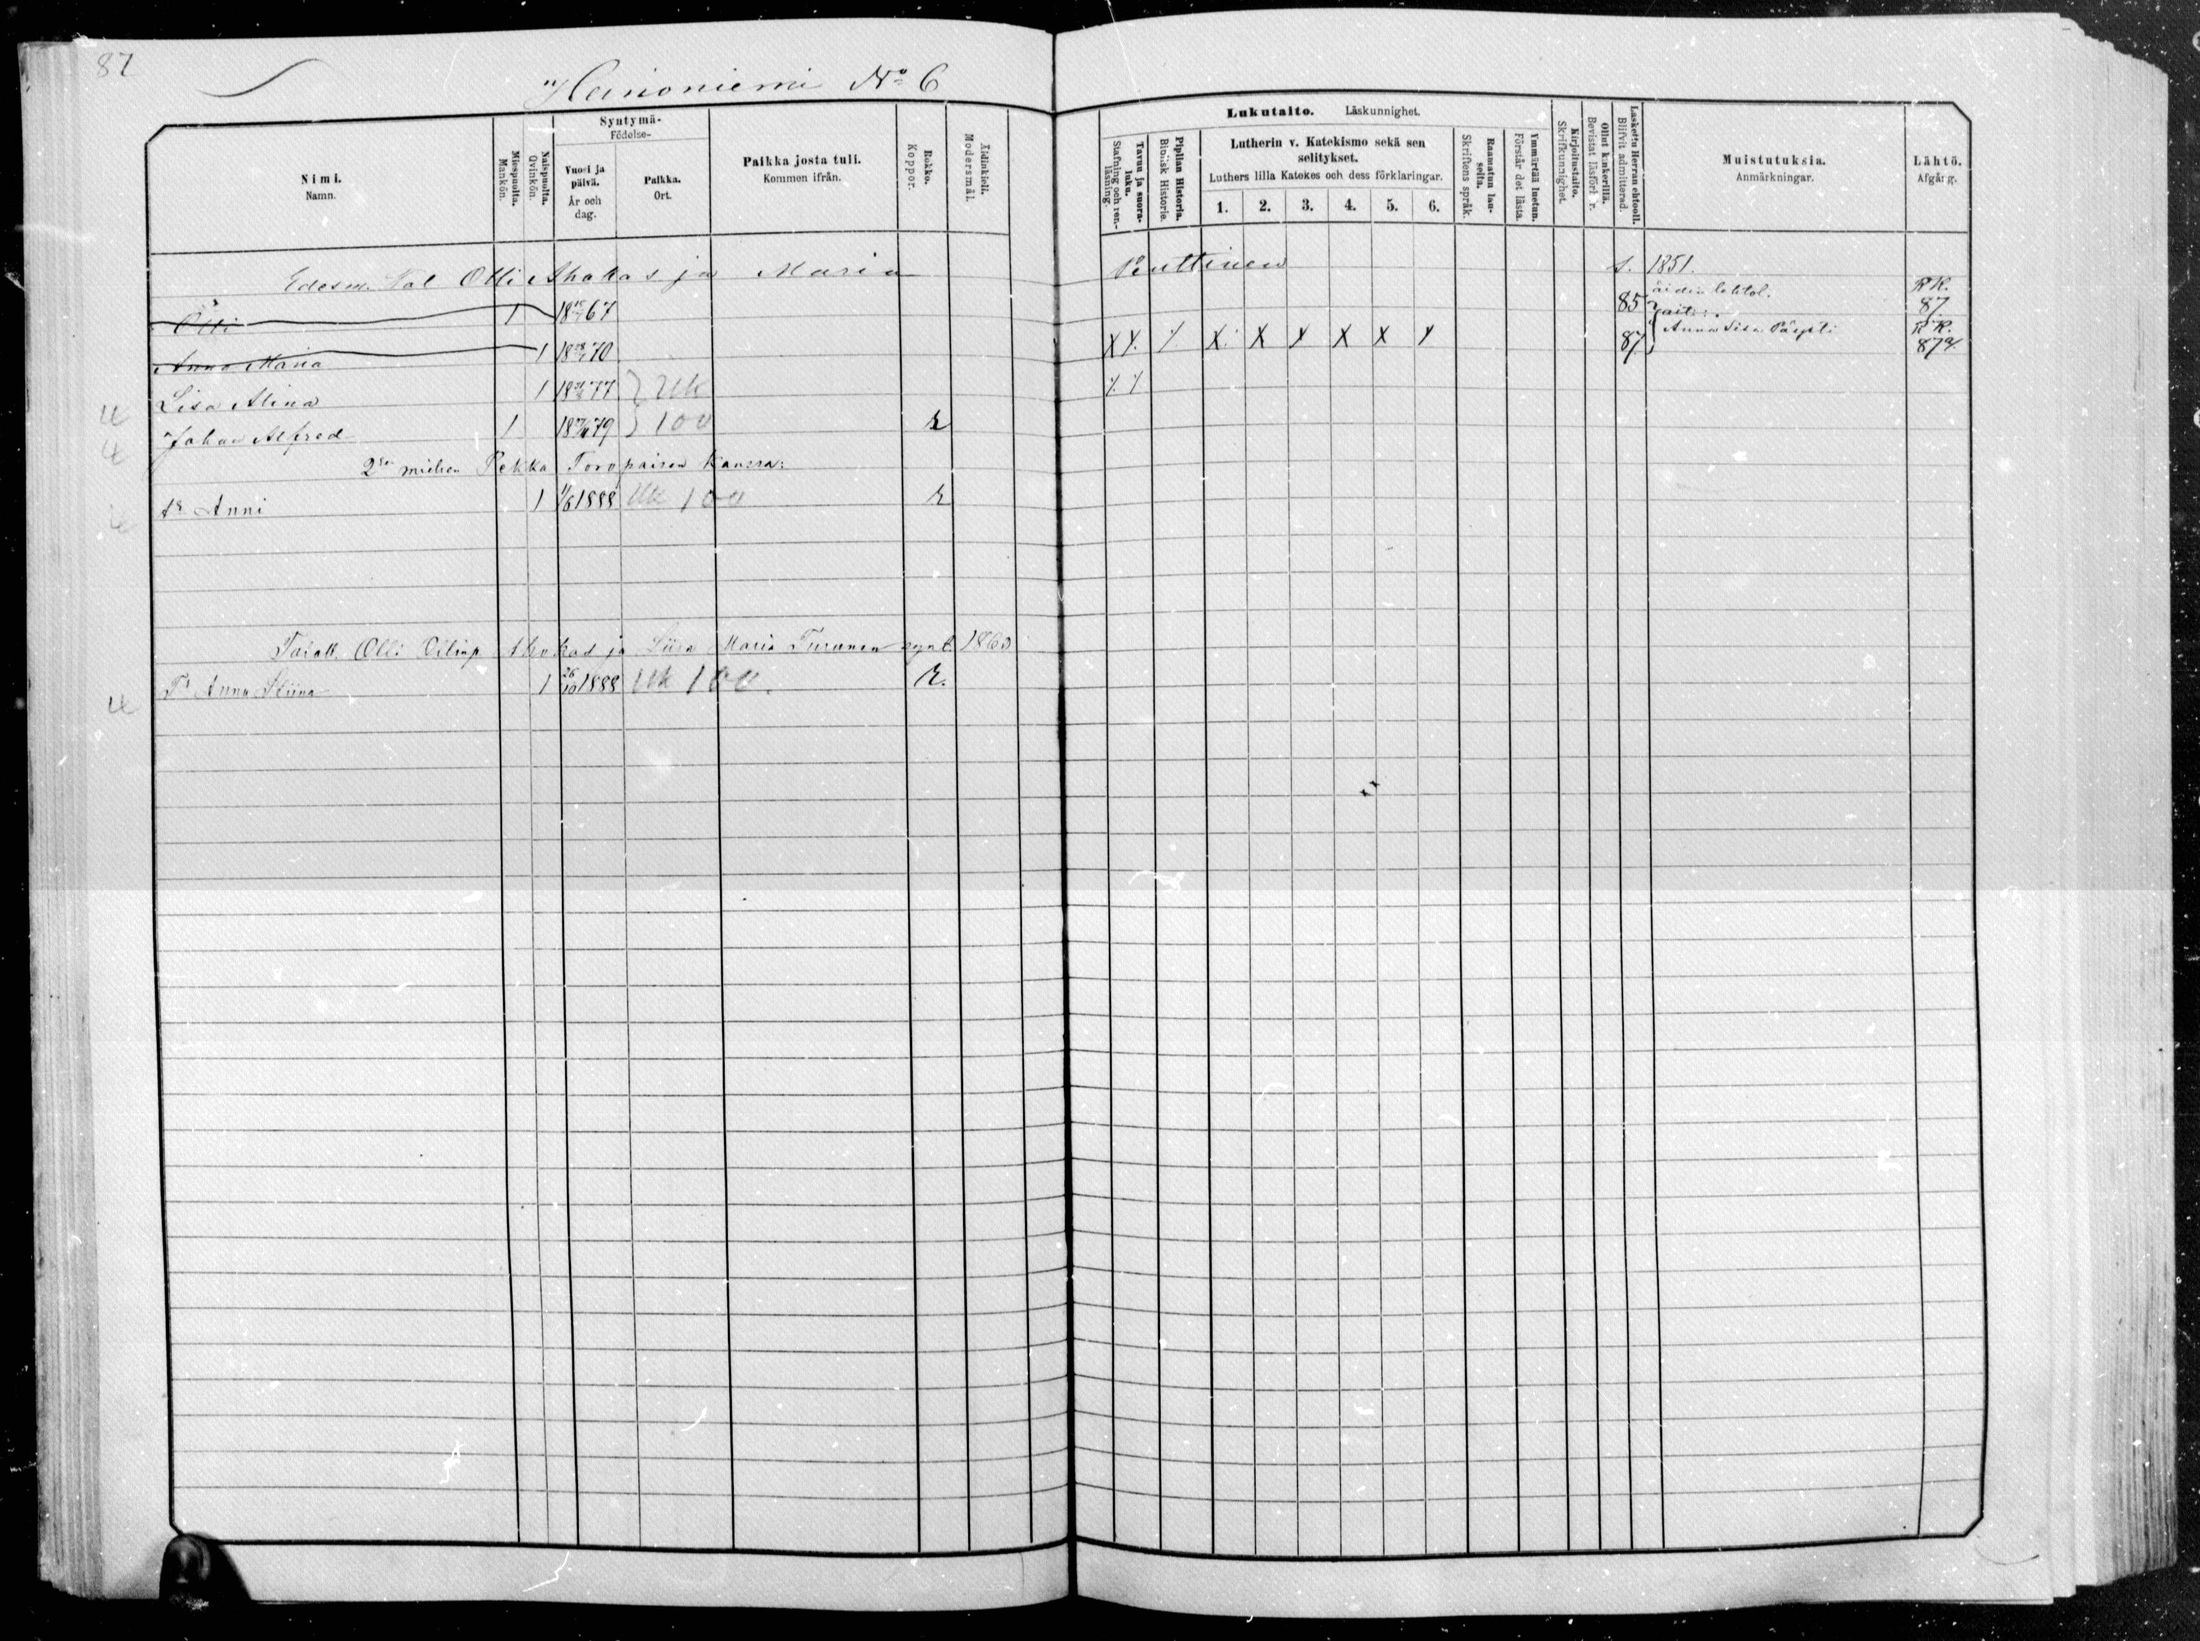 87
Heinoniemi No 6
Nimi.
Namn.
Miespuolta.
Mankön.
Naispuolta.
Qvinkön.
Syntymä-
Födelse-
Vuosi ja päivä.
År och dag.
Paikka.
Ort.
Paikka josta tuli.
Kommen ifrån.
Rokko.
Koppor.
Äidinkieli.
Modersmål.
Lukutaito. Läskunnighet.
Tavuu ja suora-luku.
Stafning och ren-läsning.
Piplian Historia.
Biblisk Historie.
Lutherin v. Katekismo sekä sen selitykset.
Luthers lilla Katekes och dess förklaringar.
1. 2. 3. 4. 5. 6.
Raamatun lau-seita.
Skriftens språk.
Ymmärtää luetun.
Förstår det lästa.
Kirjoitustaito.
Skrifkunnighet.
Ollut kinkerillä.
Bevistat läsförh r.
Laskettu Herran ehtooll.
Blifvit admitterad.
Muistutuksia.
Anmärkningar.
Lähtö.
Afgång.
Edesm. Tal Olli Ahokas ja Maria Penttinen s. 1851.
Olli 1 18 15 67 85 äidin lehtol. RK. 87.
Anna Maria 1 18 28 70 X X X X X X 87 Anna Lisa RK. 87
Lisa Alina 1 18 77 Uk
Johan Alfred 1 18 79 100 r
2sen miehen Pekka Toropaisen kanssa:
tr Anni 1 1/6 1888 Uk 100 r
Talall. Olli Ollinp. Ahokas ja Liisa Maria Turunen synt. 1860
Tr Anna Stiina 1 26/10 1888 Uk 100. r.